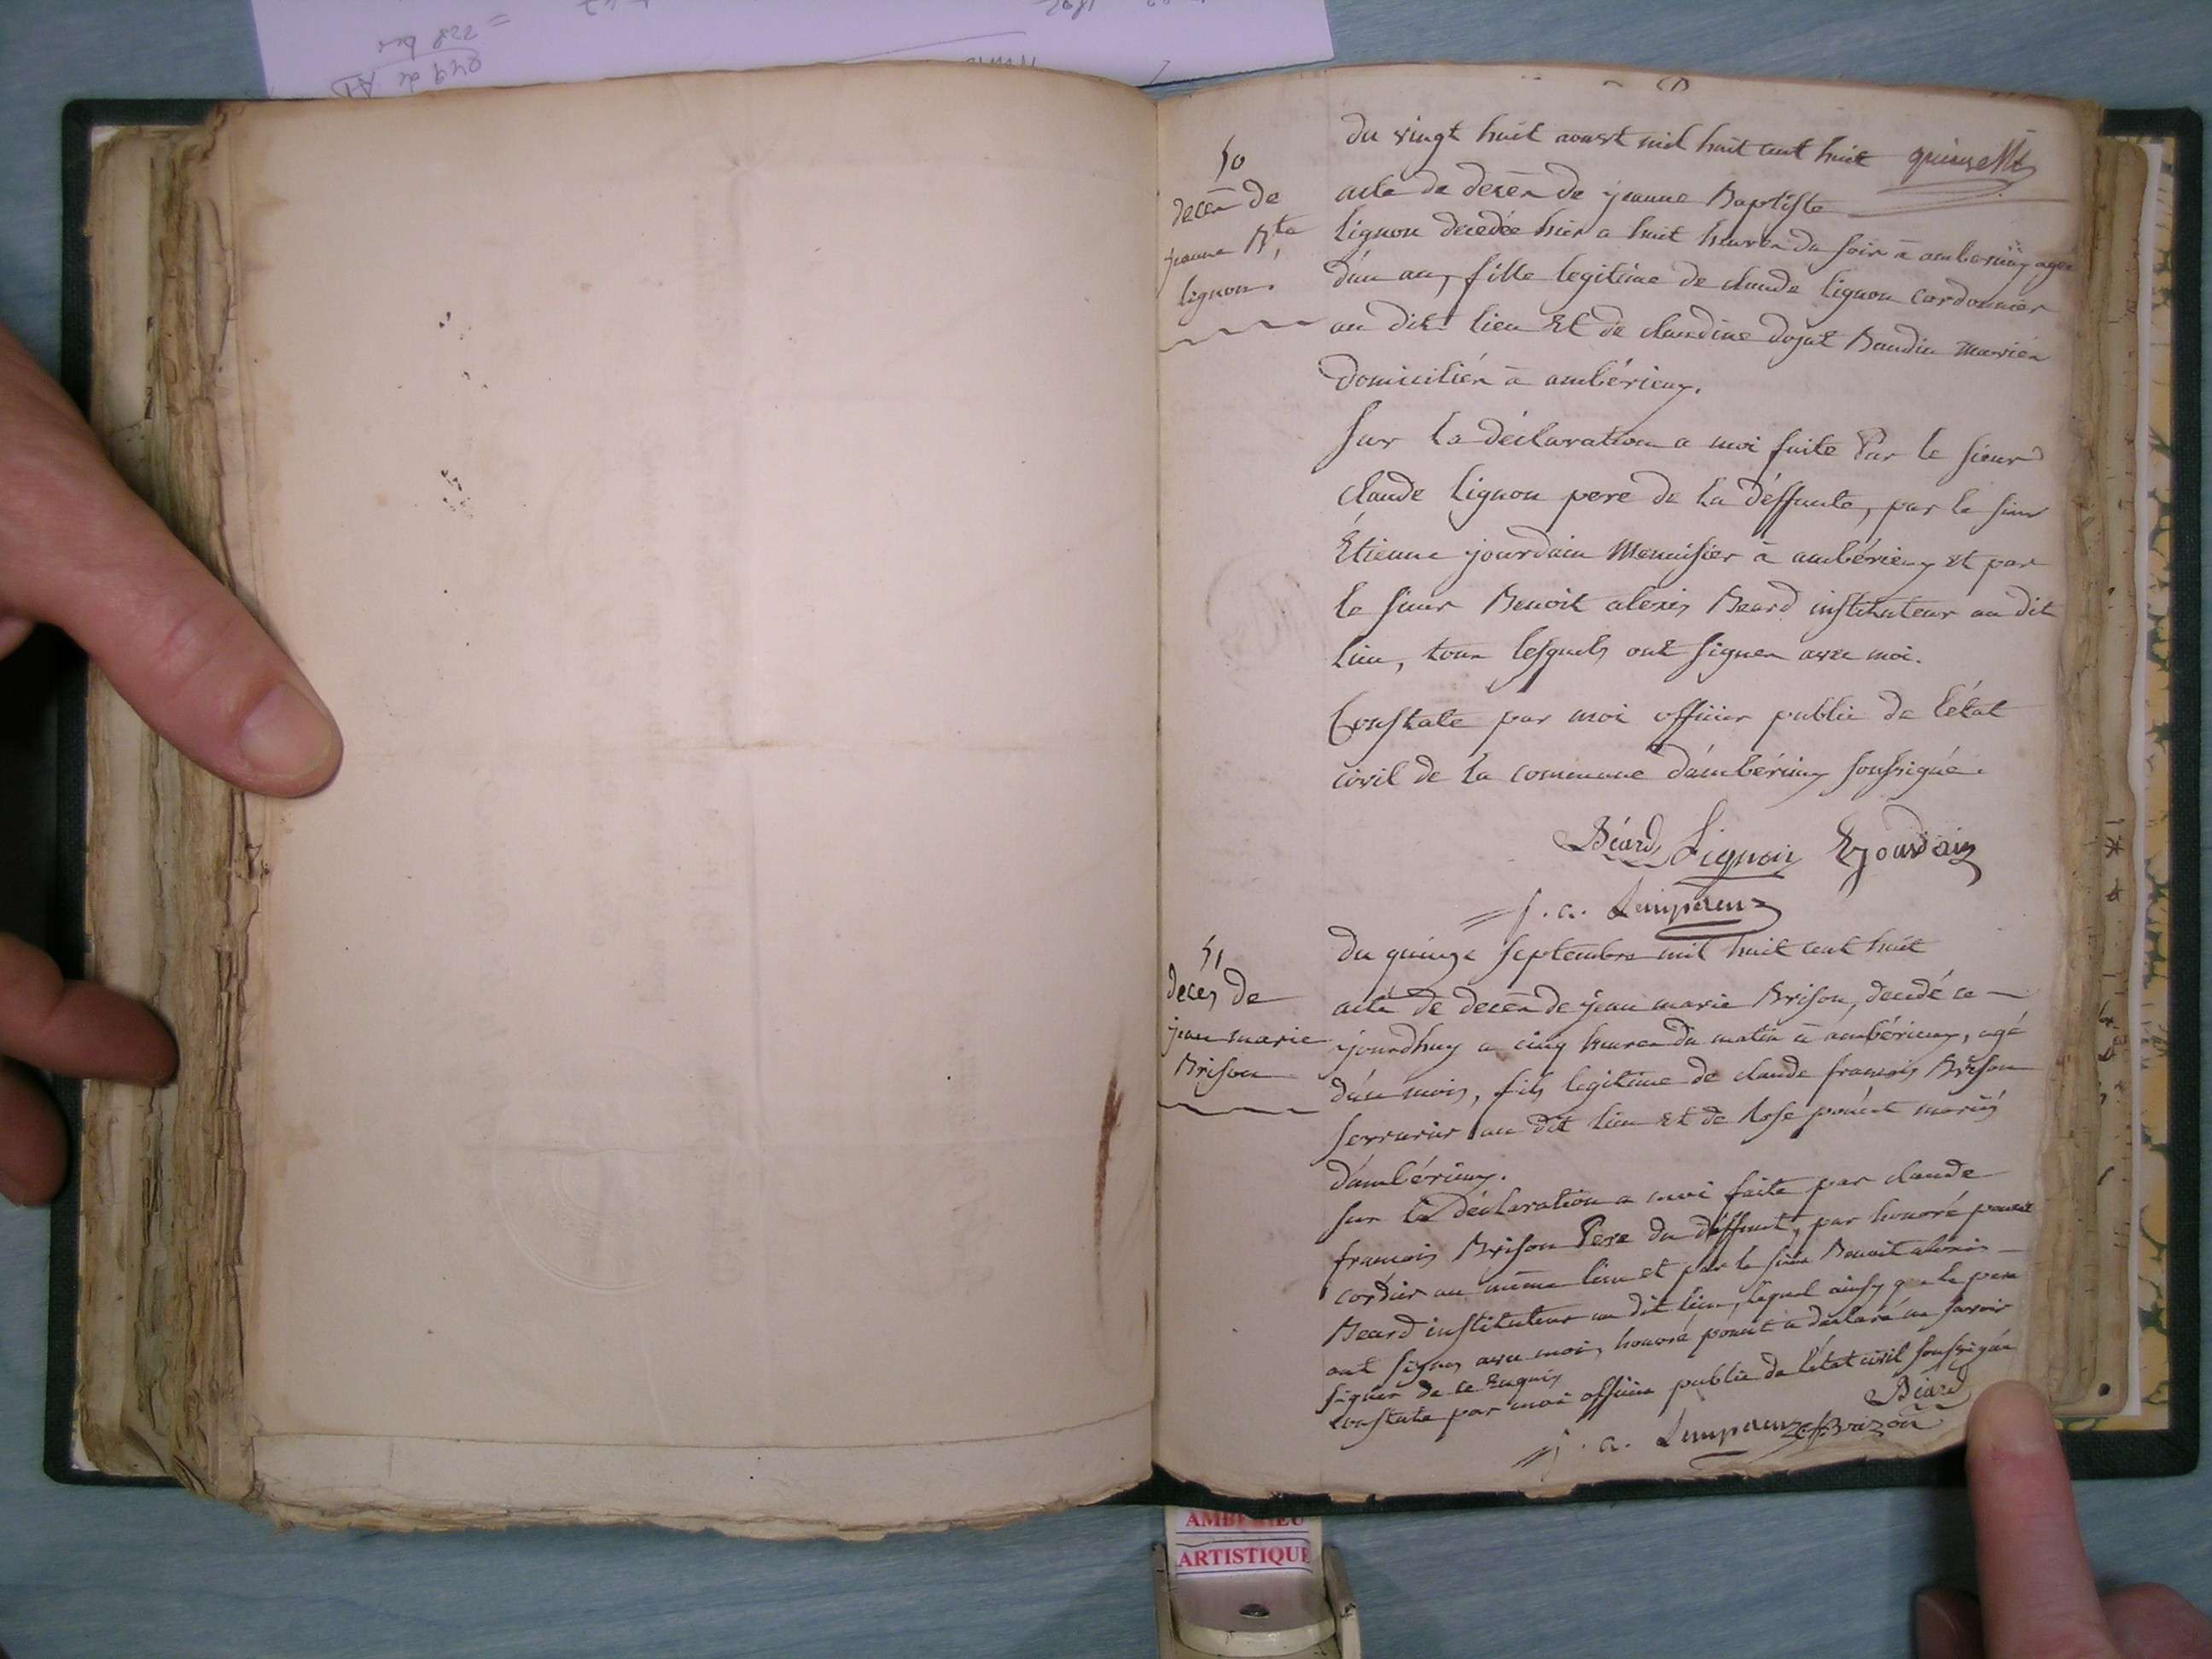 50
decès de
jeanne Bte
lignon.
du vingt huit aoust mil huit cent huit
acte de decès de jeanne Baptiste
lignon decedée hier a huit heures du soir à amberieux agée
d'un an, fille legitime de claude lignon cordonnier
au dit lieu Et de claudine dojat Baudin mariés
domiciliés à ambérieux.
Sur la déclaration a moi faite Par le sieur
claude lignon pere de la déffunte, par le sieur
Étienne jourdain Menuisier à ambérieux et par
le sieur Benoit alexis Beard instituteur au dit
lieu, tous lesquels ont signés avec moi.
Constaté par moi officier public de l'état
civil de la commune d'ambérieux soussigné.
Béard Lignon E jourdain
j. a.
51
deces de
jean marie
Brison
du quinze septembre mil huit cent huit
acte de decès de jean marie Brison, decedé ce
jourdhuy a cinq heures du matin à ambérieux, agé
d'un mois, fils legitime de claude francois Brison
serrurier au dit lieu et de Rose ponçet mariés
d'ambérieux.
sur la déclaration a moi faite par claude
francois Brison Pere du déffunt, par honoré poncet
cordier au même lieu et par le sieur Benoit alexis
Beard instituteur au dit lieu, lequel ainsy que le pere
ont signés avec moi, honoré poncet a déclaré ne savoir
signer de ce Enquis
constaté par moi officier public de l'état civil soussigné
Béard
j. a. Brizon
AMBERIEU
ARTISTIQUE